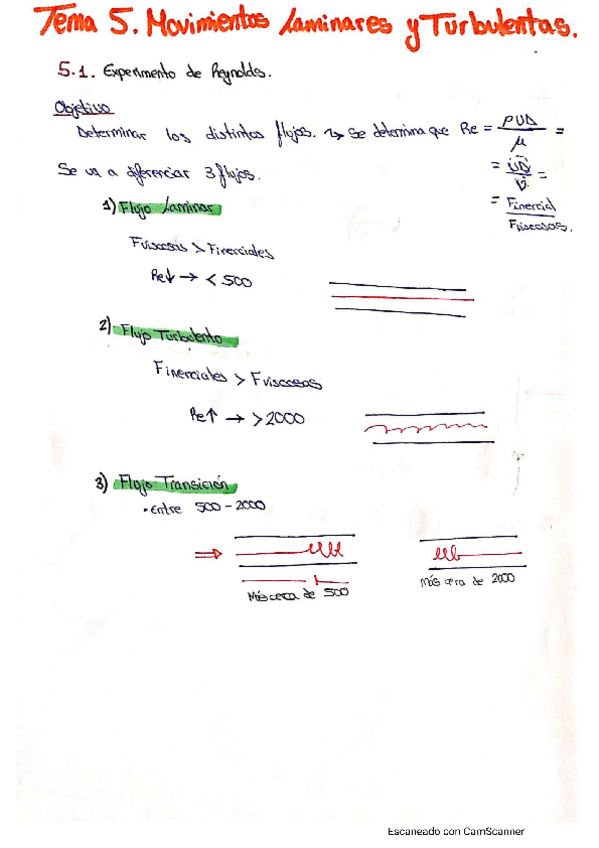 Tema 5. Movimientos Laminares y Turbulentas.
5.1. Experimento de Reynolds.
Objetivo
Determinar los distintos flujos. → Se determina que Re = ρUD / μ =
= UD / ν =
= Finercial / Fviscosas.
Se va a diferenciar 3 flujos.
1) Flujo Laminar
Fviscosas > Finerciales
Re↓ → < 500
2) Flujo Turbulento
Finerciales > Fviscosas
Re↑ → > 2000
3) Flujo Transición
• Entre 500 - 2000
⇒
Más cerca de 500
Más cerca de 2000
Escaneado con CamScanner